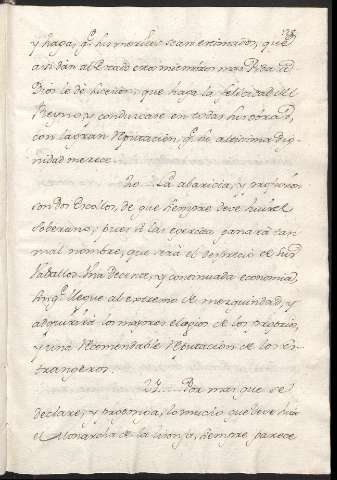 y haga, q.e sus verdas sean estimados, que
asi dàn al Estado otros miembros mas. Pida à
Dios le dè sucesion; que haga la felicidad del
Reyno, y conducirse en todas sus obras
con la gran Reputacion, q.e su altisima Dig-
nidad merece.
20. La abaricia, y profusion
son dos escollos, de que siempre deve huir el
Soberano; pues si las exercita ganarà tan
mal nombre, que serà el desprecio de sus
Vasallos. Una decente, y continuada economia,
sin q.e llegue al extremo de mezquindad, y
adquirirà los mayores elogios de los propios,
y una Recomendable Reputacion de los es-
trangeros.
21. Por mas que se
declare, y proponga, lo mucho que deve huir
el Monarcha de la lisonja, siempre parece